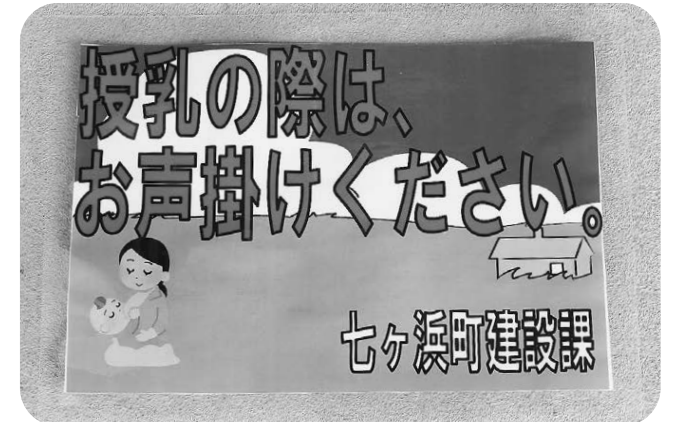 授乳の際は、
お声掛けください。
七ヶ浜町建設課